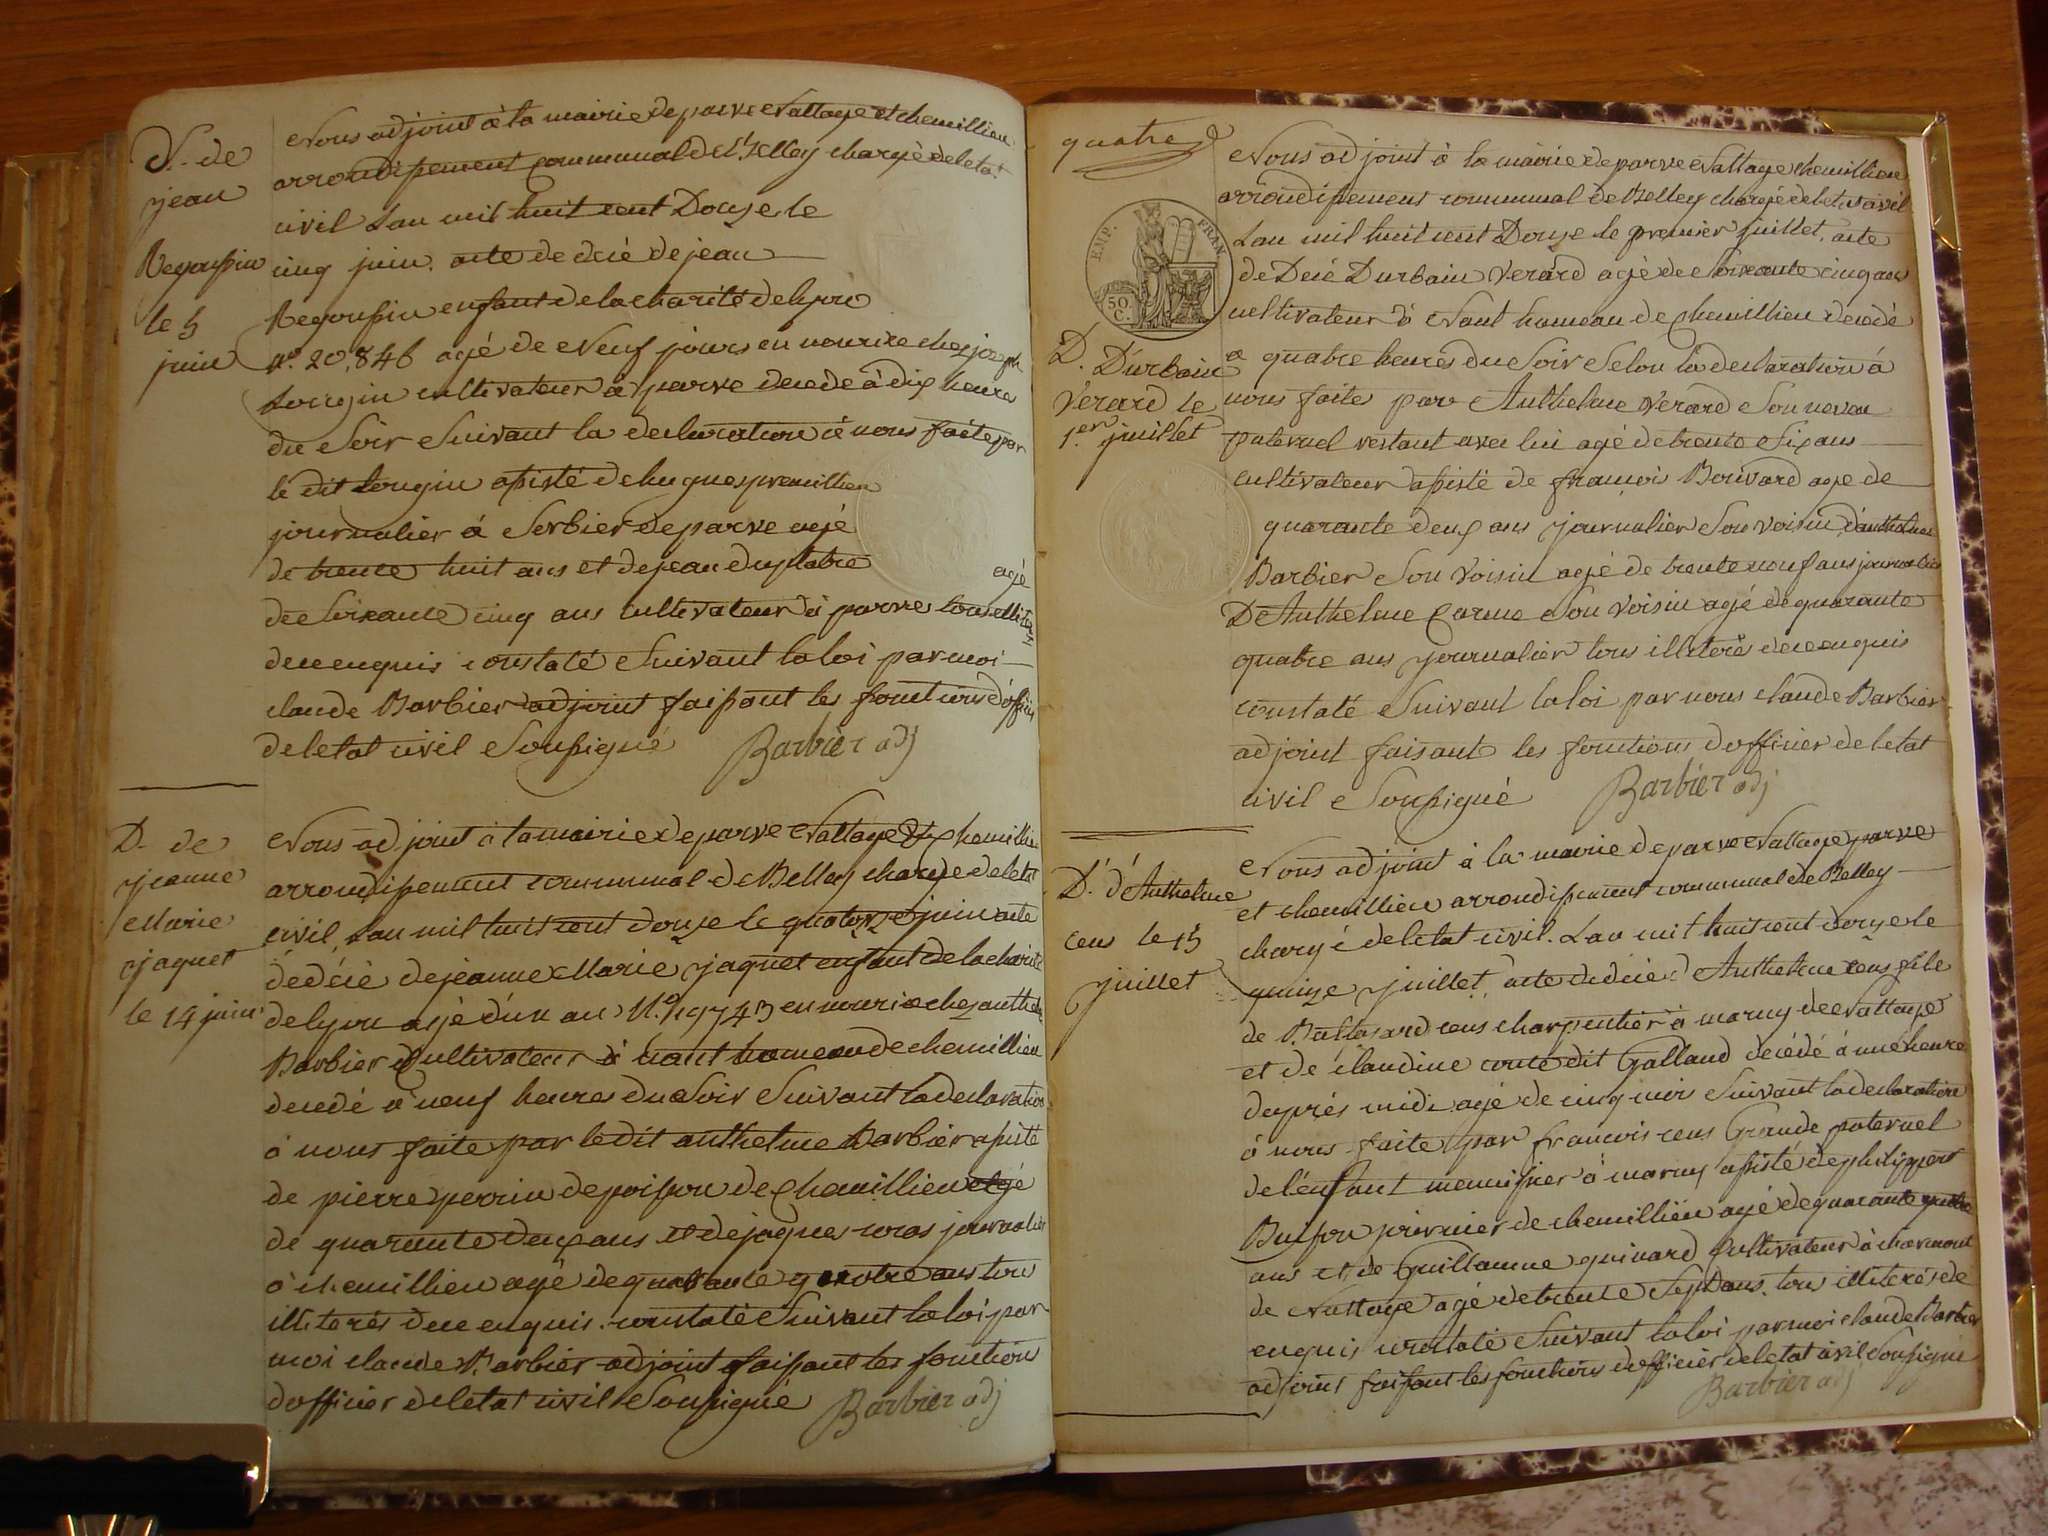 D. de
jean
Regoussin
le 5
juin
Nous adjoint à la mairie de parve Nattage et chemillieu
arrondissement communal de Belley chargé de letat
civil Lan mil huit cent Douze le
cinq juin. acte de décé de jean
Regoussin enfant de la charité de lyon
n.º 20,846 agé de Neuf jours en nourice chez joseph
Longin cultivateur a parve decede à dix heure
du Soir Suivant la declaration à nous faite par
le dit Longin assisté de hugues premillieu
journalier à Serbier de parve agé
de trente huit ans et de jean duplatre agé
de Soixante cinq ans cultivateur à parve tous illiterés
de ce enquis constaté Suivant la loi par moi
claude Barbier adjoint faissant les fonctions d'officier
de letat civil Soussigné Barbier adj
D. de
jeanne
Marie
jaquet
le 14 juin
Nous adjoint à la mairie de parve Nattage et chemillieu
arrondissement communal de Belley charge de letat
civil, Lan mil huit cent douze le quatorze juin acte
de décé de jeanne Marie jaquet enfant de la charité
de lyon agé d'un an N.º 19743 en nourice chez anthelme
Barbier cultivateur à nant hameau de chemillieu
decedé a neuf heures du Soir Suivant la declaration
à nous faite par le dit anthelme Barbier assisté
de pierre perrin de poisson de chemillieu agé
de quarante deux ans et de jaques cors journalier
à chemillieu agé de quarante quatre ans tous
illiterés de ce enquis. constaté Suivant la loi par
moi claude Barbier adjoint faissant les fonctions
dofficier de letat civil Soussigné Barbier adj
quatre
EMP. FRAN.
50.
C.
D. D'urbain
Verard le
1.er juillet
Nous adjoint à la mairie de parve Nattage chemillieu
arrondissement communal de Belley chargé de letat civil
Lan mil huit cent Douze le premier juillet. acte
de Decé Durbain Verard agé de Soixante cinq ans
cultivateur à Nant hameau de chemillieu decedé
a quatre heures du Soir Selon la declaration à
nous faites par Anthelme Verard Son neveu
paternel restant avec lui agé de trente Six ans
cultivateur assisté de francois Bouvard age de
quarante deux ans journalier Son voisin, d'anthelme
Barbier Son Voisin agé de trente neuf ans journalier
De Anthelme Son Voisin agé de quarante
quatre ans journalier tous illiterés de ce enquis
constaté Suivant la loi par nous claude Barbier
adjoint faisant les fonctions dofficier de letat
civil Soussigné Barbier adj
D. d'Anthelme
cens le 15
juillet
Nous adjoint à la mairie de parve Nattage parve
et chemillieu arrondissement communal de Belley
chargé de letat civil. Lan mil huit cent douze le
quinze juillet acte de décé d'Anthelme cens fils
de Baltasard cens charpentier à marny de Nattage
et de claudine conte dit Galland décédé à une heure
dapprés midi agé de cinq mois Suivant la declaration
à nous faite par francois cens Grande paternel
de l'enfant menuisier à marny assisté de philippe
Buisson de chemillieu agé de quarante quatre
ans et de Guillaume quinard cultivateur à charmont
de Nattage agé de trente Sept ans. tous illiterés de
enquis constaté Suivant la loi par moi claude Barbier
adjoint faissant les fonctions dofficier de letat civil Soussigné
Barbier adj